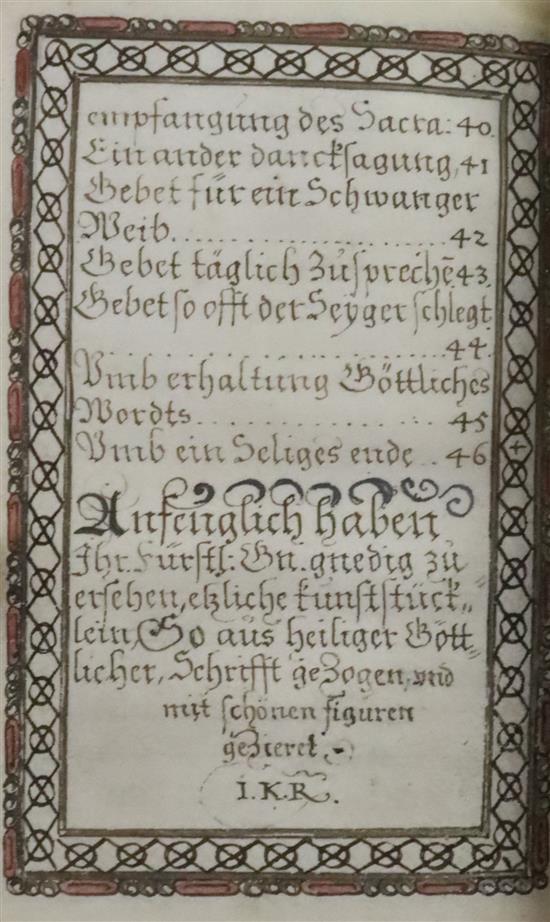 empfangung des Sacra: 40.
Ein ander dancksagung, 41
Gebet für ein Schwanger
Weib....................... 42
Gebet täglich zusprechē 43.
Gebet so offt der Seyger schlegt
.............................. 44.
Vmb erhaltung Göttliches
Wordts.................. 45
Vmb ein Seliges ende .. 46
Anfenglich haben
Ihr. Fürstl: Gn. gnedig zu
ersehen, etzliche kunststück„
lein, So aus heiliger Gött„
licher, Schrifft gezogen, und
mit schönen figuren
gezieret.
I.K.R.